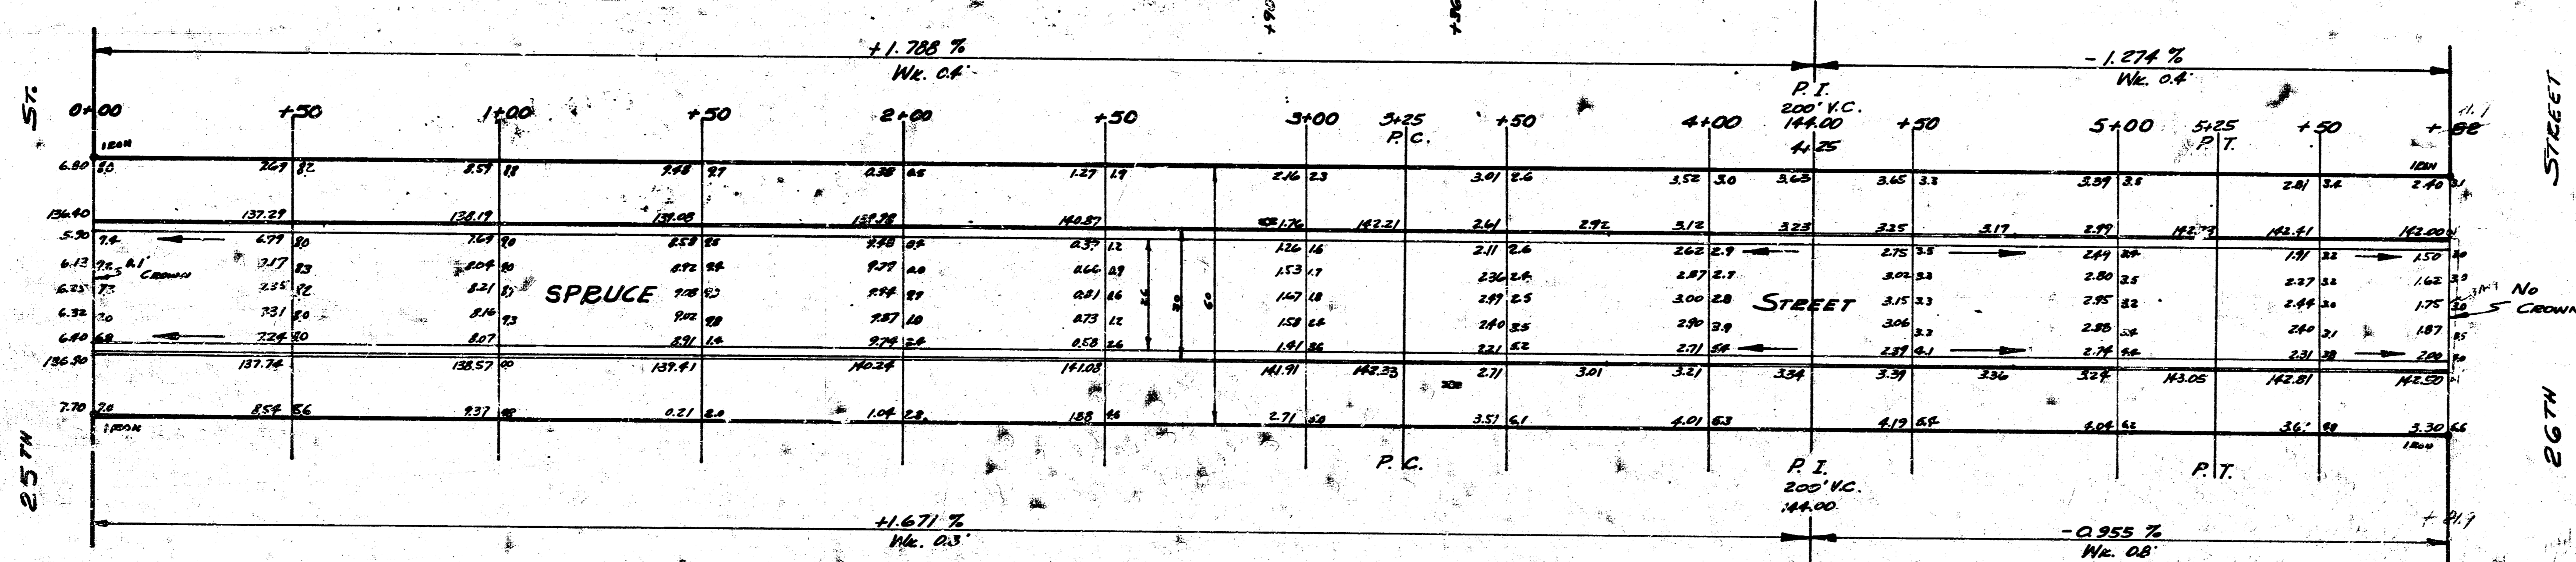 +90
+56
+1.788 %
Wk. 0.4'
- 1.274 %
Wk. 0.4'
P. I.
200' V.C.
144.00
4+25
ST.
STREET
0+00 +50 1+00 +50 2+00 +50 3+00 3+25 +50 4+00 +50 5+00 5+25 +50
P.C. P.T.
IRON IRON
6.80 80 7.69 82 8.59 9.48 97 0.38 0.5 1.27 1.9 2.16 2.3 3.01 2.6 3.52 3.0 3.63 3.65 3.3 3.39 3.5 2.81 3.4 2.40 3.1
136.40 137.29 138.19 139.08 139.98 140.87 1.76 142.21 2.61 2.92 3.12 3.23 3.25 3.17 2.99 142.73 142.41 142.00
5.90 7.4 6.79 80 7.69 90 8.58 9.48 0.37 1.2 1.26 1.6 2.11 2.6 2.62 2.9 2.75 3.5 2.49 1.91 3.2 1.50
6.13 0.1' CROWN 7.17 83 8.04 90 8.92 9.79 0.66 0.9 1.53 1.7 2.36 2.4 2.87 2.7 3.02 3.2 2.80 3.5 2.27 3.2 1.62
6.25 7.35 82 8.21 SPRUCE 9.08 9.94 0.81 1.67 1.8 2.49 2.5 3.00 2.8 STREET 3.15 3.3 2.95 3.2 2.44 3.0 1.75 No CROWN
6.32 7.31 80 8.16 93 9.02 98 9.87 1.0 0.73 1.2 1.58 2.4 2.40 3.5 2.90 3.9 3.06 3.3 2.88 2.40 3.1 1.87
6.40 7.24 8.07 8.91 1.4 9.74 2.4 0.58 2.6 1.41 3.6 2.21 5.2 2.71 5.4 2.89 4.1 2.74 2.31 2.00
26 30 60
136.90 137.74 138.57 139.41 140.24 141.08 141.91 142.33 2.71 3.01 3.21 3.34 3.39 3.36 3.24 143.05 142.81 142.50
7.70 7.0 8.54 8.6 9.37 0.21 2.0 1.04 2.8 1.88 4.6 2.71 5.0 3.51 6.1 4.01 6.3 4.19 6.4 4.04 6.2 3.6 3.30 6.6
IRON IRON
P.C. P.I. P.T.
200' V.C.
144.00
25TH
26TH
+1.671 %
Wk. 0.3'
- 0.955 %
Wk. 0.8'
+ 81.9